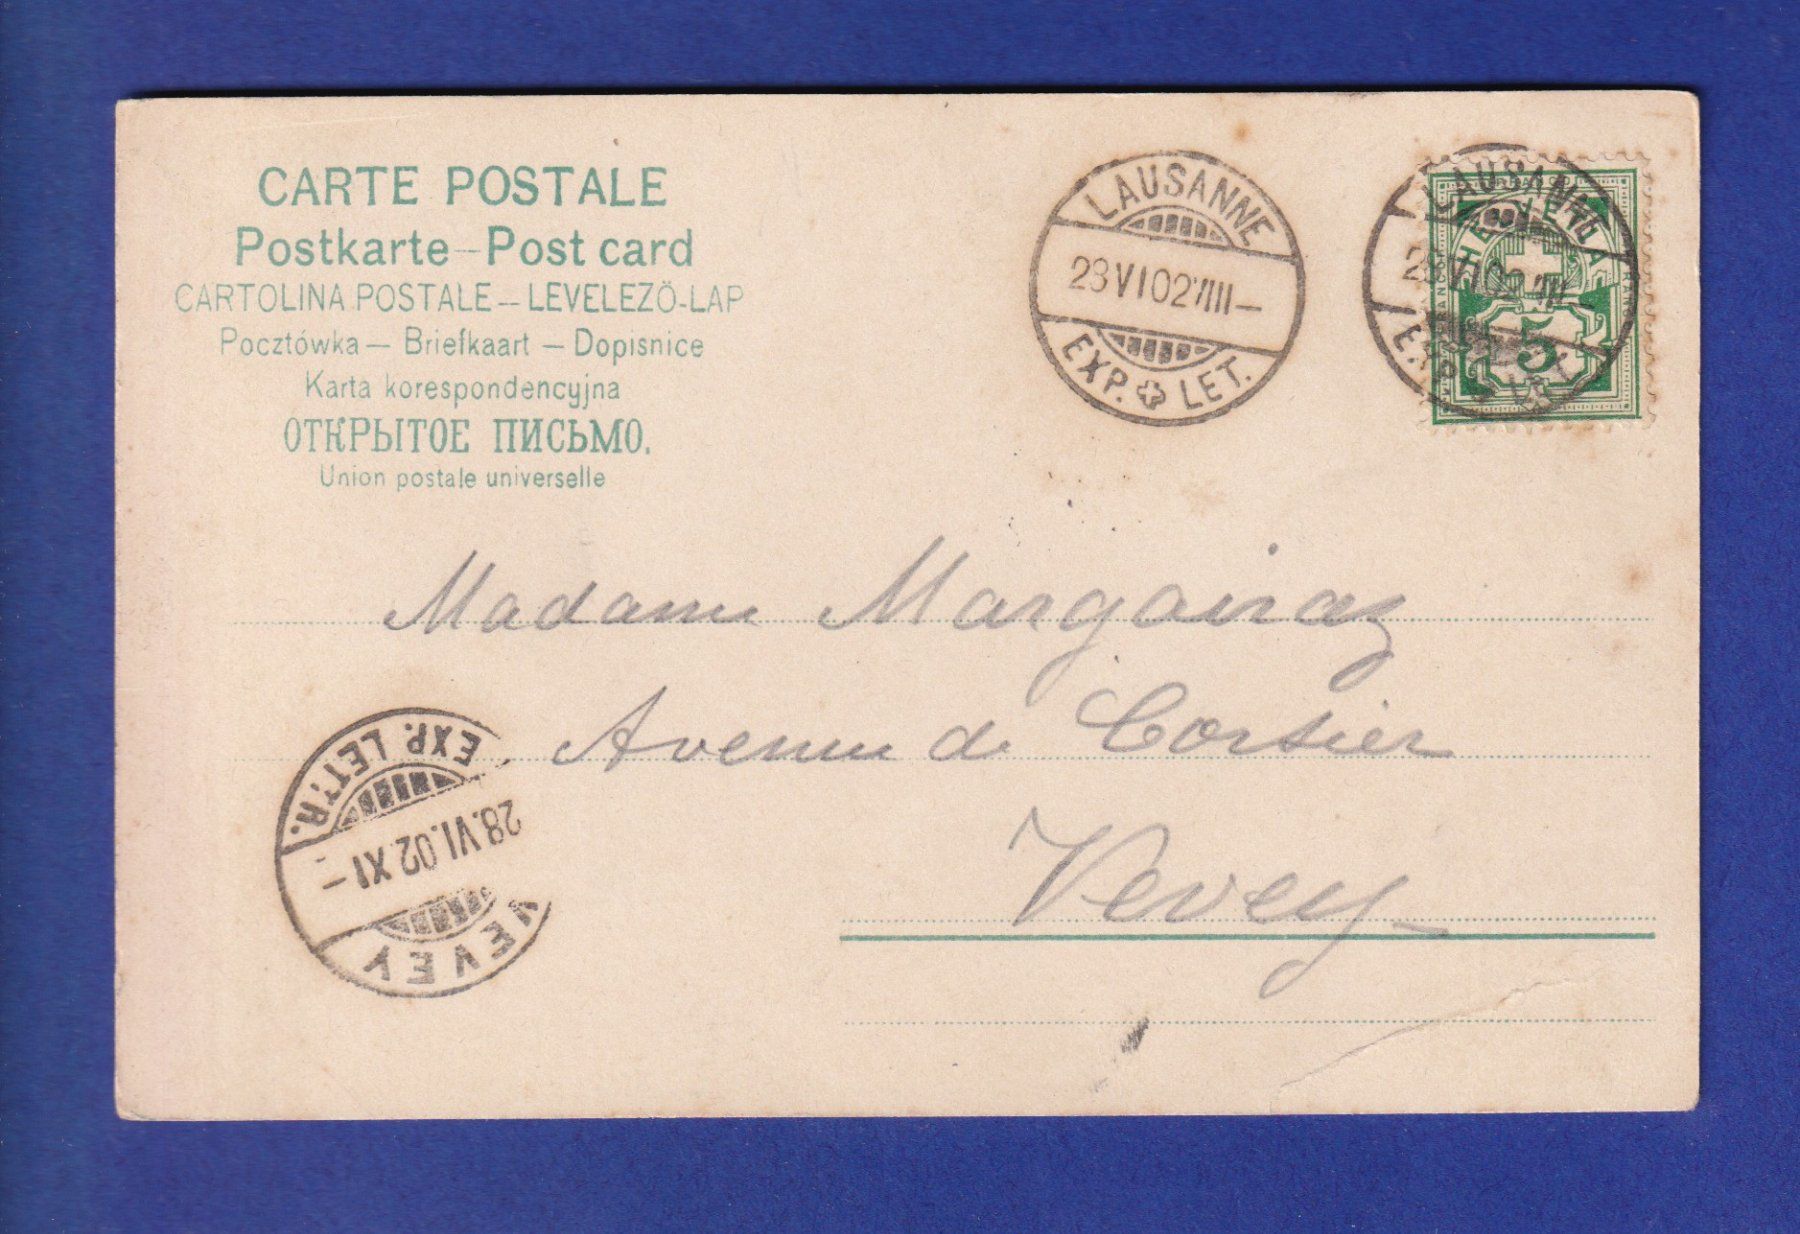 CARTE POSTALE
Postkarte—Post card
CARTOLINA POSTALE — LEVELEZŐ-LAP
Pocztówka — Briefkaart — Dopisnice
Karta korespondencyjna
ОТКРЫТОЕ ПИСЬМО.
Union postale universelle
LAUSANNE
28 VI 02 VIII—
EXP. LET.
LAUSANNE
28 VI 02 VIII—
EXP. LET.
HELVETIA
FRANCO
5
Madame Margairaz
Avenue de Corsier
Vevey
VEVEY
28.VI.02.XI—
EXP. LETTR.